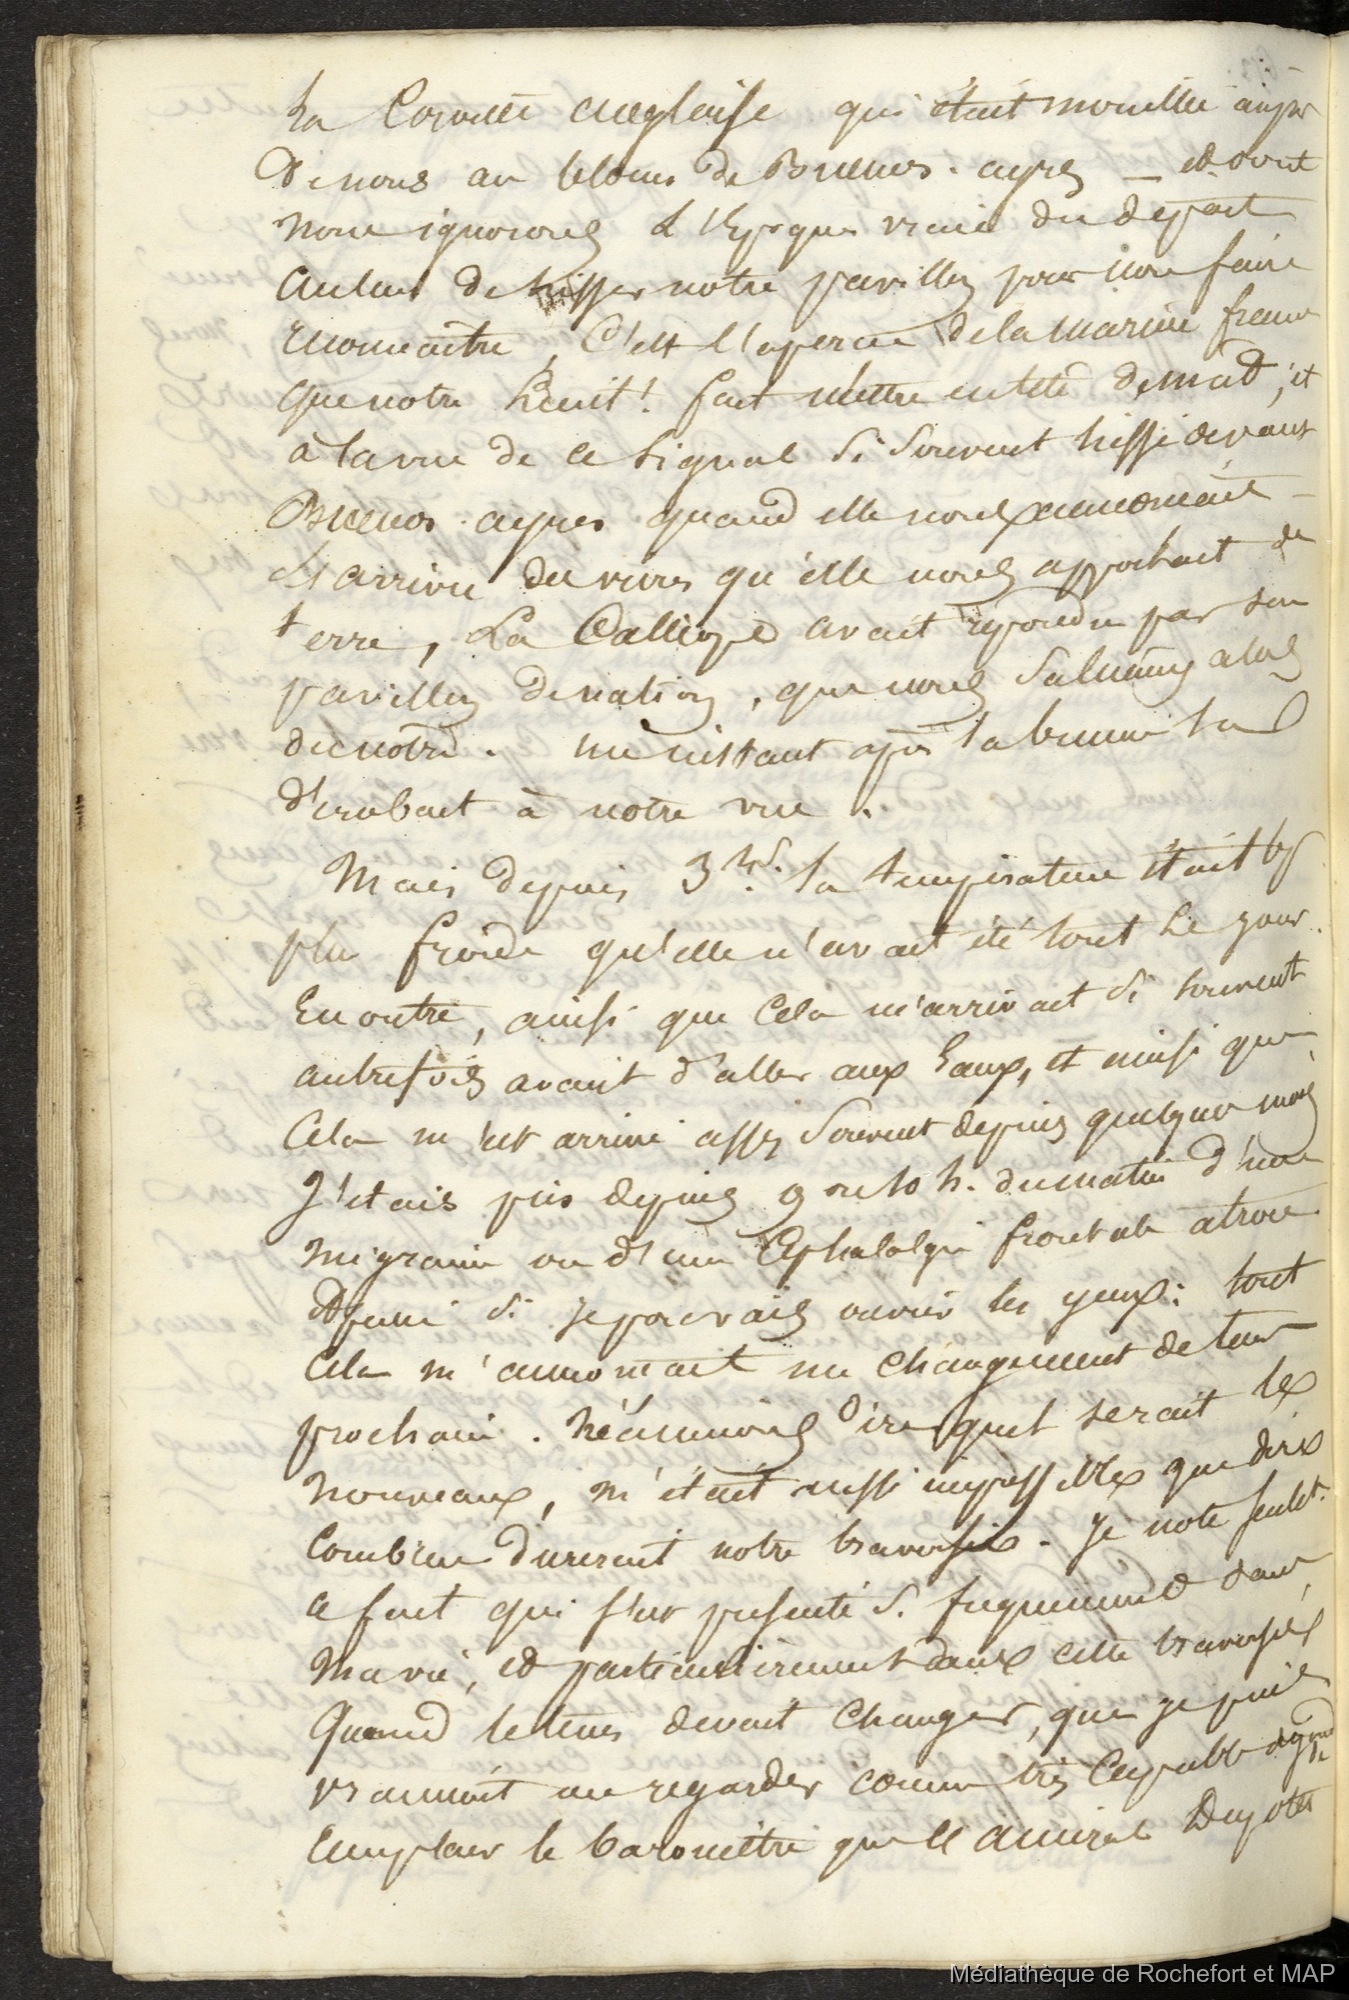 la Corvette anglaise qui était mouillée auprès
de nous au blocus de Buenos-ayres _ et dont
nous ignorons l'époque vraie du départ
au lieu de hisser notre pavillon pour nous faire
reconnaitre, C'est l'aperçu de la marine franc
que notre Lieut! fait mettre en tête de mât; et
à la vue de ce signal si souvent hissé devant
Buenos-ayres quand elle nous annoncait
L'arrivée des vivres qu'elle nous apportait de
terre, La Calliope avait repondu par son
pavillon de nation, que nous saluâmes alors
du notre. un instant après la brume la
d'érobait à notre vue.
Mais depuis 3 hs. la température était bs
plus froide qu'elle n'avait été tout le jour.
En outre, ainsi que cela m'arrivait si souvent
autrefois avant d'aller aux Eaux, et ainsi que
Cela m'est arrivé assez souvent depuis quelques mois
J'étais pris depuis 9 ou 10 h. du matin d'une
migraine ou d'une Céphalalgie frontale atroce
à peine si je pouvais ouvrir les yeux: tout
cela m'annoncait un changement de tems
prochain. Néanmoins dire quel serait le
nouveau, m'était aussi impossible que dire
Combien durerait notre traversée. Je note seulet.
ce fait qui s'est présenté si fréquemment dans
ma vie, et particulièrement dans cette traversée
Quand le tems devait changer, que je puis
vraiment me regarder comme très capable de
remplacer le baromètre que l'amiral Dupotet